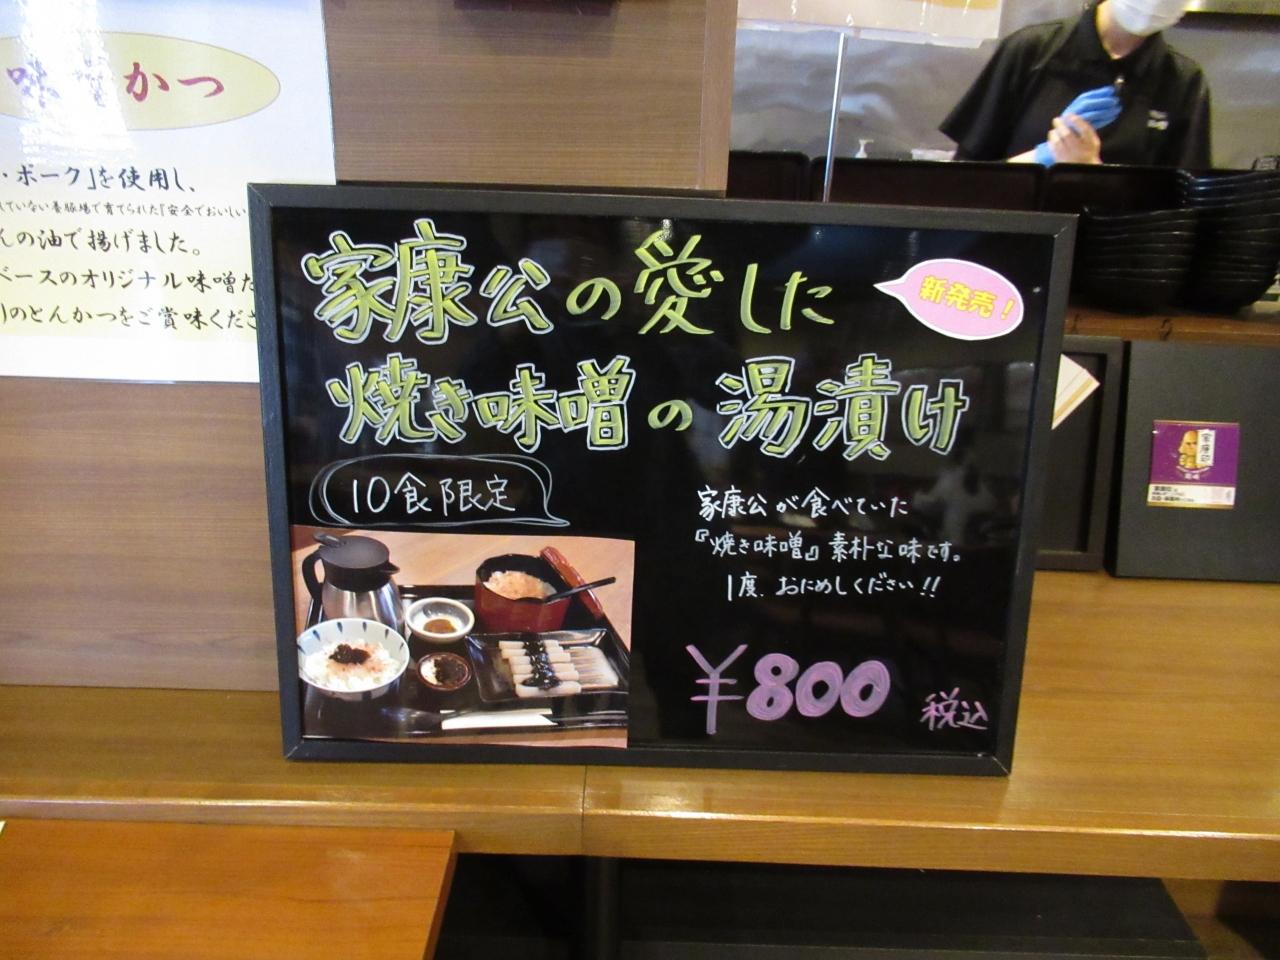 味噌かつ
・ポーク」を使用し、
していない養豚場で育てられた『安全でおいしい
んの油で揚げました。
ベースのオリジナル味噌だ
のとんかつをご賞味くださ
家康公の愛した
新発売！
焼き味噌の湯漬け
10食限定
家康公が食べていた
『焼き味噌』素朴な味です。
1度、おためしください!!
¥800 税込
家康印